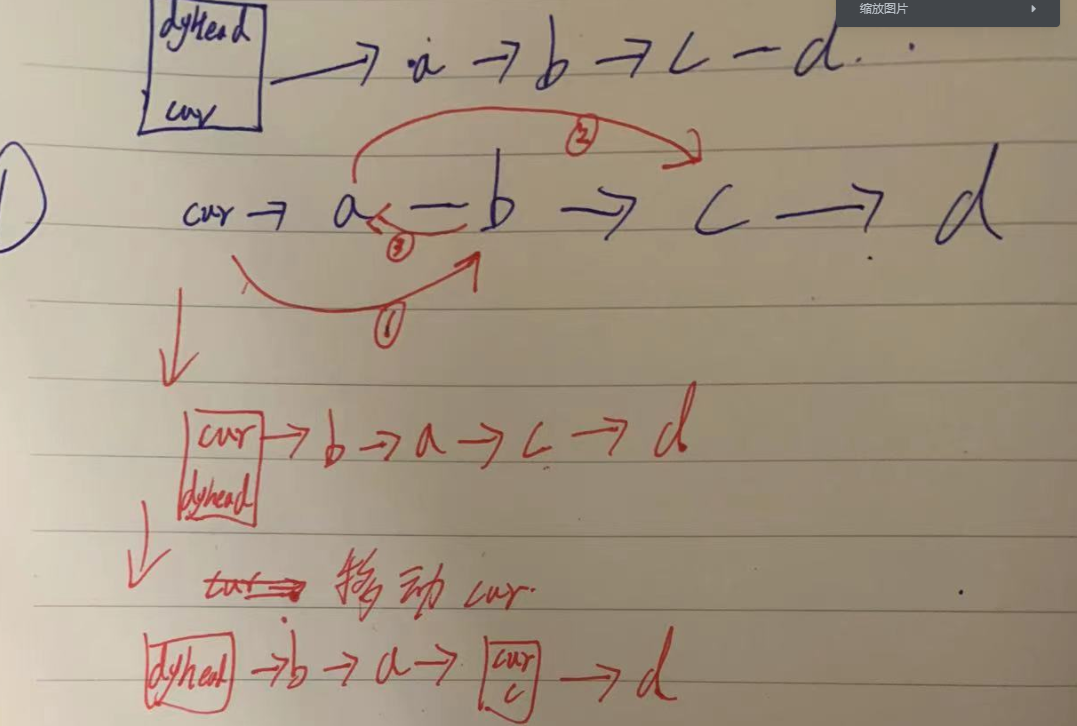 缩放图片
dyHead → a → b → c — d
cur
①
②
cur → a — b → c → d
③
①
cur → b → a → c → d
dyhead
移动 cur.
dyhead → b → a → cur → d
c